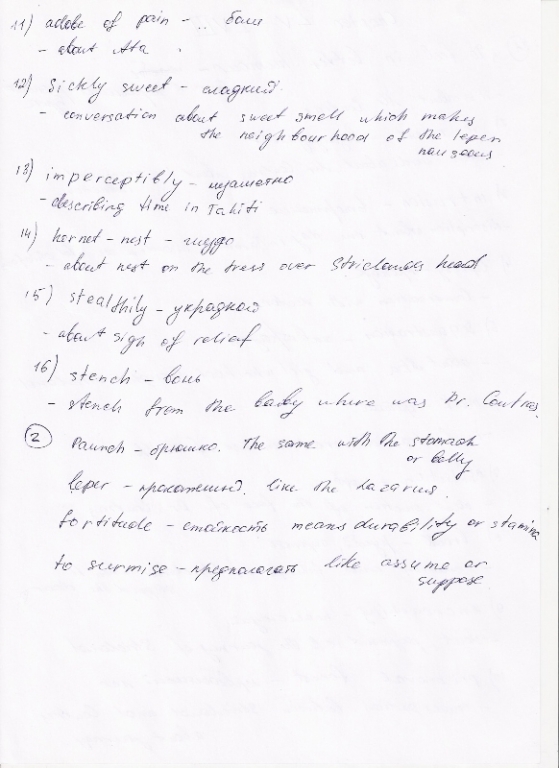 11) adobe of pain - .. боли
- about Ata
12) Sickly sweet - сладкий
- conversation about sweet smell which makes
the neighbourhood of the leper
nauseous
13) imperceptibly - незаметно
- describing time in Tahiti
14) hornet - nest - гнездо
- about nest on the tress over Striclands head
15) stealthily - украдкой
- about sigh of relief
16) stench - вонь
- stench from the baby where was Dr. Coutras.
2 Paunch - брюшко. The same with the stomach
or belly
leper - прокаженный. like the Lazarus.
fortitude - стойкость means durability or stamina
to surmise - предпологать like assume or
suppose